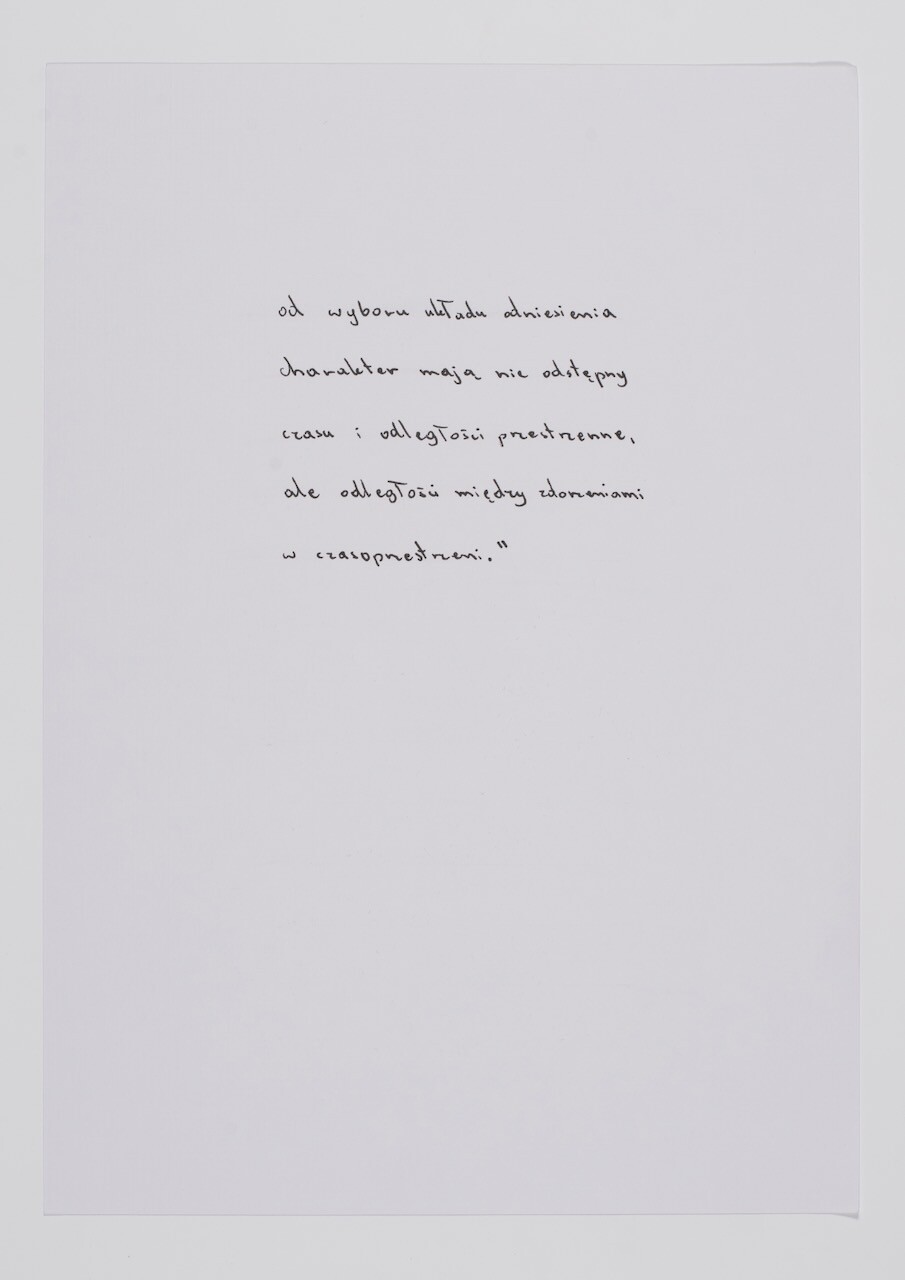 od wyboru układu odniesienia
charakter mają nie odstępny
czasu i odległości przestrzenne,
ale odległości między zdarzeniami
w czasoprzestrzeni."